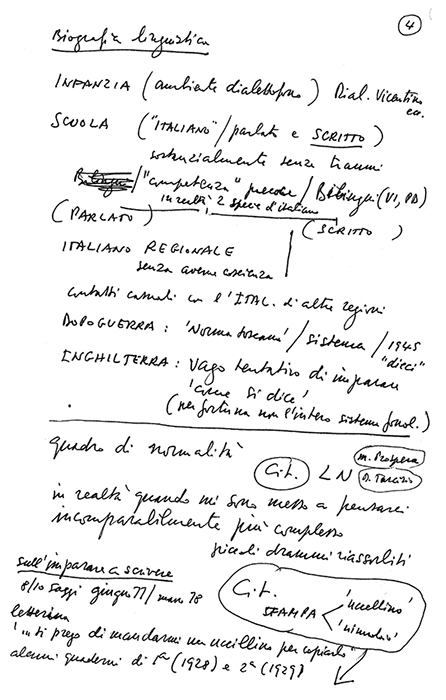 4
Biografia linguistica
INFANZIA (ambiente dialettofono) Dial. Vicentino ecc.
SCUOLA ("ITALIANO"/parlato e SCRITTO)
sostanzialmente senza traumi
"competenza" precoce / Bilingui (VI, PD)
in realtà 2 specie d'italiano
(PARLATO) (SCRITTO)
ITALIANO REGIONALE
senza averne coscienza
contatti casuali con l'ITAL. di altre regioni
DOPOGUERRA: 'Norma toscana' / sistema / 1945
"dieci"
INGHILTERRA: Vago tentativo di imparare
'come si dice'
(per fortuna non l'intero sistema fonol.)
quadro di normalità
Cit. LN m. Prospera
D. Tarcisio
in realtà quando mi sono messo a pensarci
incomparabilmente più complesso
piccoli drammi riassorbiti
sull'imparare a scrivere
8/10 saggi giugno 77 / mar 78
letterina
'...ti prego di mandarmi un uccellino per copiarlo"
alcuni quaderni di 1ª (1928) e 2ª (1929)
Cit.
STAMPA < 'uccellino'